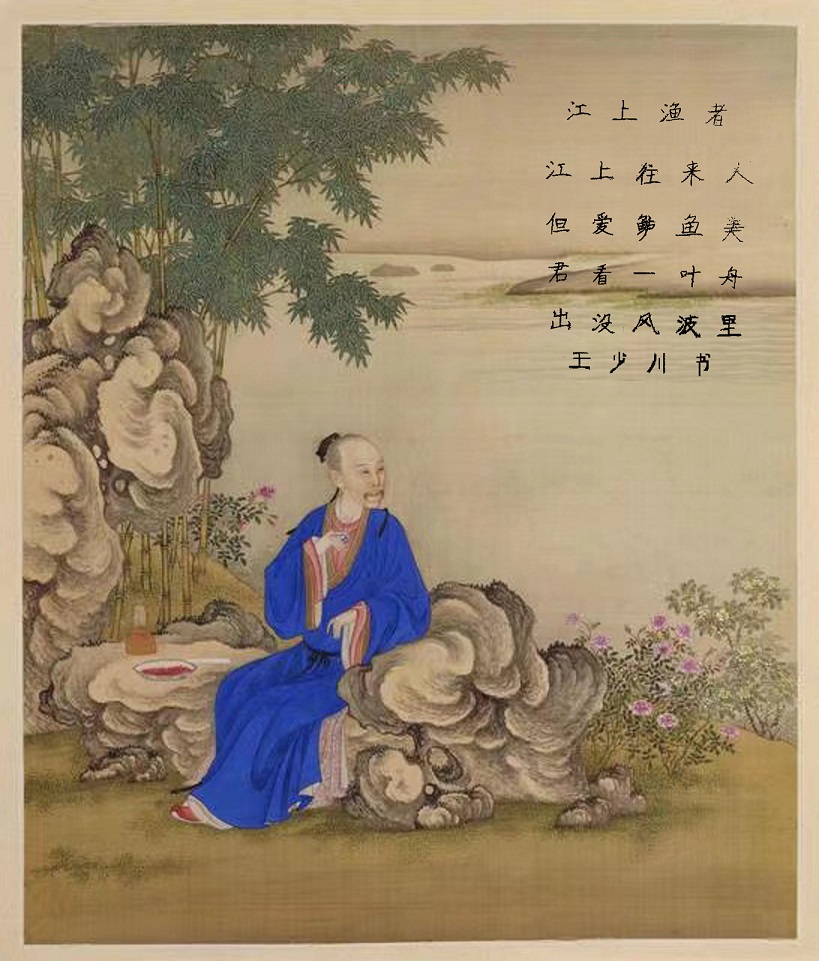 江上渔者
江上往来人
但爱鲈鱼美
君看一叶舟
出没风波里
王少川书